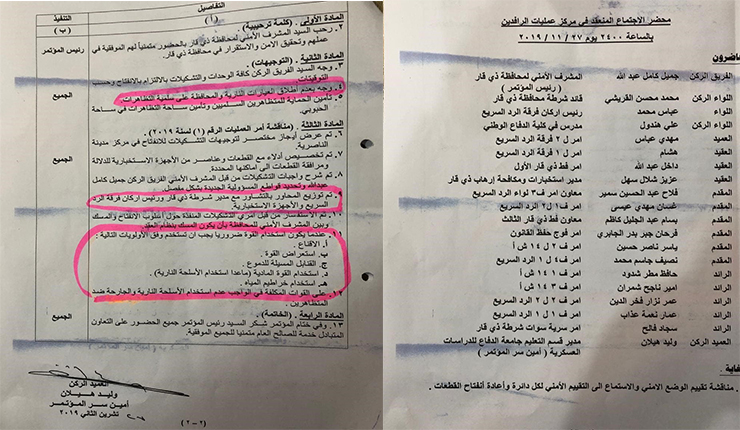 محضر الاجتماع المنعقد في مركز عمليات الرافدين
بالساعة ٢٤٠٠ يوم ٢٧ / ١١ / ٢٠١٩
الفريق الركن جميل كامل عبد الله المشرف الأمني لمحافظة ذي قار
( رئيس المؤتمر )
اللواء الركن محمد محسن القريشي قائد شرطة محافظة ذي قار
اللواء عباس محمد رئيس اركان فرقة الرد السريع
اللواء الركن علي هندول مدرس في كلية الدفاع الوطني
العميد مهدي عباس امر ل ٢ فرقة الرد السريع
العقيد هشام امر ل ١ فرقة الرد السريع
العقيد داخل عبد الله امر فط ذي قار الأول
العقيد عزيز شلال سهل مدير استخبارات ومكافحة إرهاب ذي قار
المقدم فلاح عبد الحسين عمير معاون امر ف٣ لواء الرد السريع
المقدم غسان مهدي عيسى امر ف ١ ل ٢ فرقة الرد السريع
المقدم بسام عبد الجليل كاظم معاون فط ذي قار الثالث
المقدم فرحان جبر بدر الجابري امر فوج حفظ القانون
المقدم ياسر ناصر حسين امر ف ٢ ل ١٤ ش أ
المقدم نصيف جاسم محمد امر ف٤ ل ١ الرد السريع
الرائد حافظ مطر شدود امر ف ٣ ل ١٤ ش أ
الرائد امير ناجح شمران امر ف ١ ل ١٤ ش أ
الرائد عمر نزار فخر الدين امر ف ٢ ل ٢ الرد السريع
الرائد عمار نعمة عذاب امر ف ٢ ل ١ الرد السريع
الرائد سجاد فالح امر سرية سوات شرطة ذي قار
العميد الركن وليد هيلان مدير قسم التعليم جامعة الدفاع للدراسات
العسكرية ( أمين سر المؤتمر )
مناقشة تقييم الوضع الامني والاستماع الى التقييم الأمني لكل دائرة وأعادة أنفتاح القطعات .
التفاصيل التنفيذ
( أ ) ( ب )
المادة الأولى . ( كلمة ترحيبية ) .
٢. رحب السيد المشرف الأمني لمحافظة ذي قار بالحضور متمنياً لهم الموفقية في
عملهم وتحقيق الامن والاستقرار في محافظة ذي قار . رئيس المؤتمر
المادة الثانية . ( التوجيهات ) .
٣. وجه السيد الفريق الركن كافة الوحدات والتشكيلات بالالتزام بالانفتاح وحسب
التوقيتات .
٤. وجه بعدم أطلاق العيارات النارية والمحافظة على سلمية التظاهرات الجميع
تأمين الحماية للمتظاهرين السلميين وتأمين ساحة التظاهرات في ساحة
الحبوبي .
المادة الثالثة . ( مناقشة أمر العمليات الرقم (١) لسنة ٢٠١٩ ) .
٦. تم عرض أيجاز مختصر لتوجيهات التشكيلات للأنفتاح في مركز مدينة
الناصرية .
٧. تم تخصيص أدلاء مع القطعات وعناصر من الأجهزة الاستخبارية للدلالة
ومرافقة القطعات الى أماكنها المحددة .
٨. تم شرح واجبات التشكيلات من قبل المشرف الأمني الفريق الركن جميل كامل
عبدالله وتحديد قواطع المسؤولية الجديدة بشكل مفصل .
٩. تم توزيع المحاور بالتشاور مع مدير شرطة ذي قار ورئيس اركان فرقة الرد الجميع
السريع والأجهزة الاستخبارية .
١٠. تم المناقشة من قبل آمري التشكيلات المنفذة حول أسلوب الانفتاح والمسك
وبين المشرف الأمني للمحافظة بأن يكون المسك بنظام العقد .
١١. عندما يكون استخدام القوة ضرورياً يجب ان تستخدم وفق الأولويات التالية :
أ. الاقناع .
ب. استعراض القوة .
ج. القنابل المسيلة للدموع .
د. استخدام القوة المادية (ماعدا استخدام الأسلحة النارية) .
هـ. استخدام خراطيم المياه .
١٢. على القوات المكلفة في الواجب عدم استخدام الأسلحة النارية والجارحة ضد
المتظاهرين .
المادة الرابعة . ( الخاتمة ) .
١٣. وفي ختام المؤتمر شكر السيد رئيس المؤتمر جميع الحضور على التعاون الجميع
المتبادل خدمة للصالح العام متمنياً للجميع الموفقية .
العميد الركن
وليد هيلان
أمين سر المؤتمر
تشرين الثاني ٢٠١٩
(٢-٢)